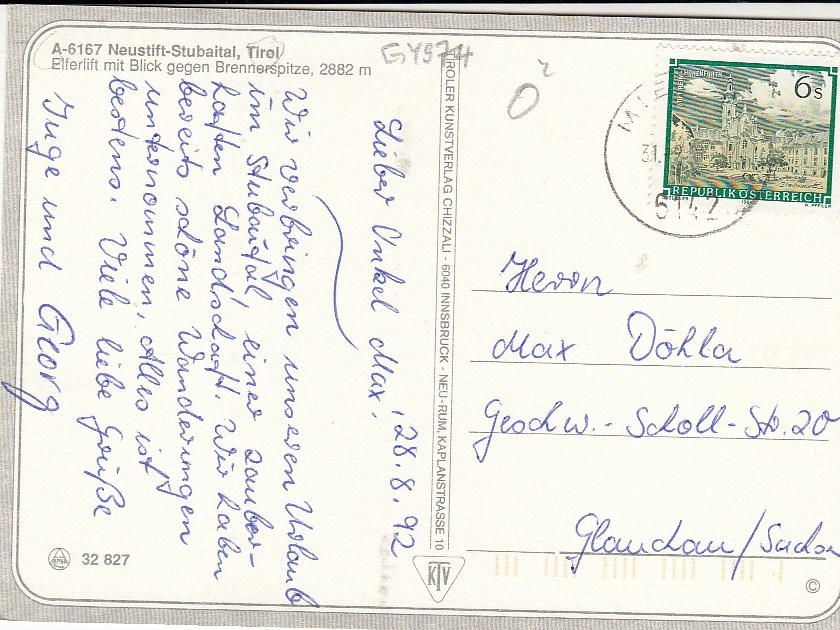 A-6167 Neustift-Stubaital, Tirol
Elferlift mit Blick gegen Brennerspitze, 2882 m
GY974
28.8.92
Lieber Onkel Max!
Wir verbringen unseren Urlaub
im Stubaital, einer zauber-
haften Landschaft. Wir haben
bereits schöne Wanderungen
unternommen, Alles ist
bestens. Viele liebe Grüße
Inge und Georg
32 827
TIROLER KUNSTVERLAG CHIZZALI - 6040 INNSBRUCK - NEU-RUM, KAPLANSTRASSE 10
KTV
6 S
STIFT REIN-HOHENFURTH
REPUBLIK ÖSTERREICH
MIE
31.
6142
Herrn
Max Döhla
Geschw.-Scholl-Str. 20
Glauchau/Sachsen
©